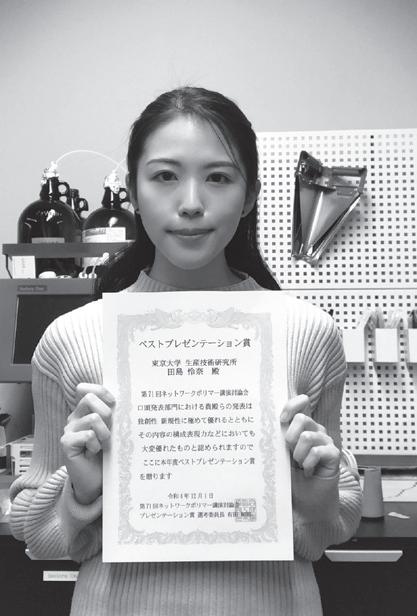 ベストプレゼンテーション賞
東京大学 生産技術研究所
田島 怜奈 殿
第71回ネットワークポリマー講演討論会
口頭発表部門における貴殿らの発表は
独創性 新規性に極めて優れるとともに
その内容の構成表現力などにおいても
大変優れたものと認められますので
ここに本年度ベストプレゼンテーション賞
を贈ります
令和4年12月1日
第71回ネットワークポリマー講演討論会
プレゼンテーション賞 選考委員長 有田